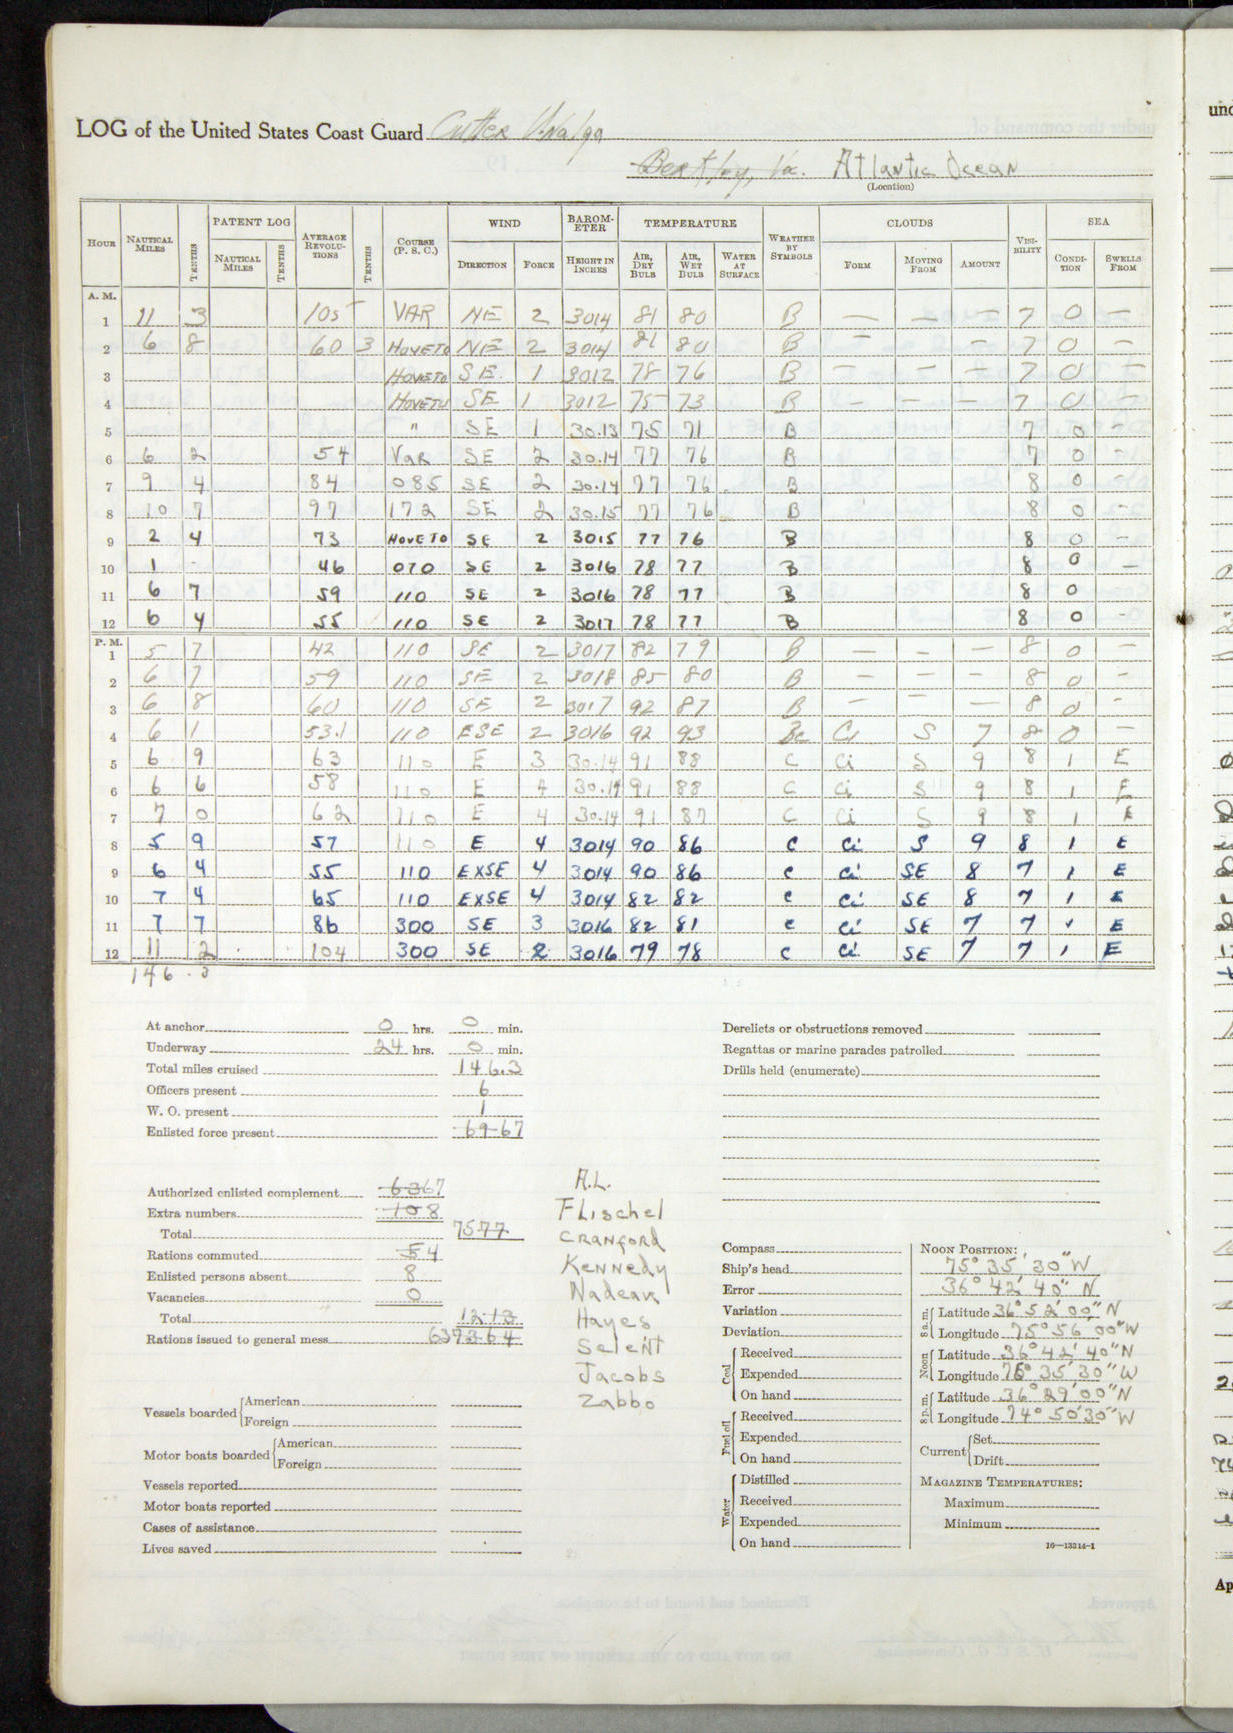 LOG of the United States Coast Guard Cutter Unalga
Berkley, Va. Atlantic Ocean
(Location)
HOUR NAUTICAL MILES TENTHS PATENT LOG NAUTICAL MILES TENTHS AVERAGE REVOLU-TIONS TENTHS COURSE (P. S. C.) WIND DIRECTION FORCE BAROM-ETER HEIGHT IN INCHES TEMPERATURE AIR, DRY BULB AIR, WET BULB WATER AT SURFACE WEATHER BY SYMBOLS CLOUDS FORM MOVING FROM AMOUNT VISI-BILITY SEA CONDI-TION SWELLS FROM
A. M.
1 11 3 105 VAR NE 2 3014 81 80 B — — — 7 0 —
2 6 8 60 3 HOVETO NE 2 3014 81 80 B — — 7 0 —
3 HOVETO SE 1 3012 78 76 B — — — 7 0 —
4 HOVETO SE 1 3012 75 73 B — — — 7 0 —
5 " SE 1 30.13 75 71 B 7 0 -
6 6 2 54 Var SE 2 30.14 77 76 B 7 0 -
7 9 4 84 085 SE 2 30.14 77 76 B 8 0 -
8 10 7 97 172 SE 2 30.15 77 76 B 8 0 -
9 2 4 73 HOVE TO SE 2 3015 77 76 B 8 0 -
10 1 - 46 070 SE 2 3016 78 77 B 8 0 —
11 6 7 59 110 SE 2 3016 78 77 B 8 0
12 6 4 55 110 SE 2 3017 78 77 B 8 0 -
P. M.
1 5 7 42 110 SE 2 3017 82 79 B — — — 8 0 —
2 6 7 59 110 SE 2 3018 85 80 B — — — 8 0 -
3 6 8 60 110 SE 2 3017 92 87 B — — — 8 0 -
4 6 1 53.1 110 ESE 2 3016 92 93 Bc Ci S 7 8 0 —
5 6 9 63 110 E 3 30.14 91 88 C Ci S 9 8 1 E
6 6 6 58 110 E 4 30.14 91 88 C Ci S 9 8 1 E
7 7 0 62 110 E 4 30.14 91 87 C Ci S 9 8 1 E
8 5 9 57 110 E 4 3014 90 86 C Ci S 9 8 1 E
9 6 4 55 110 EXSE 4 3014 90 86 C Ci SE 8 7 1 E
10 7 4 65 110 EXSE 4 3014 82 82 C Ci SE 8 7 1 E
11 7 7 86 300 SE 3 3016 82 81 C Ci SE 7 7 1 E
12 11 2 104 300 SE 2 3016 79 78 C Ci SE 7 7 1 E
146.3
At anchor 0 hrs. 0 min.
Underway 24 hrs. 0 min.
Total miles cruised 146.3
Officers present 6
W. O. present 1
Enlisted force present 69 67
Authorized enlisted complement 63 67
Extra numbers 10 8
Total 75 77
Rations commuted 5 4
Enlisted persons absent 8
Vacancies 0
Total 12 13
Rations issued to general mess 63
Vessels boarded American
Foreign
Motor boats boarded American
Foreign
Vessels reported
Motor boats reported
Cases of assistance
Lives saved
A.L.
Flischel
Cranford
Kennedy
Nadeau
Hayes
Selent
Jacobs
Zabbo
Derelicts or obstructions removed
Regattas or marine parades patrolled
Drills held (enumerate)
Compass
Ship's head
Error
Variation
Deviation
Coal Received
Expended
On hand
Fuel oil Received
Expended
On hand
Water Distilled
Received
Expended
On hand
NOON POSITION:
75° 35' 30" W
36° 42' 40" N
8 a. m. Latitude 36° 52' 00" N
Longitude 75° 56' 00" W
Noon Latitude 36° 42' 40" N
Longitude 75° 35' 30" W
8 p. m. Latitude 36° 29' 00" N
Longitude 74° 50' 30" W
Current Set
Drift
MAGAZINE TEMPERATURES:
Maximum
Minimum
16—13214-1
und
Ap